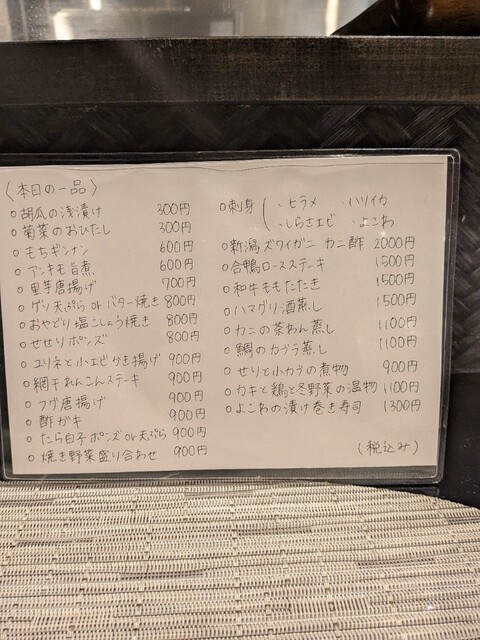 〈本日の一品〉
○胡瓜の浅漬け 300円
○菊菜のおひたし 300円
○もちギンナン 600円
○アンキモ旨煮 600円
○里芋唐揚げ 700円
○ゲソ天ぷら orバター焼き 800円
○おやどり塩こしょう焼き 800円
○せせりポンズ 800円
○ユリネと小エビかき揚げ 900円
○網干れんこんステーキ 900円
○フグ唐揚げ 900円
○酢ガキ 900円
○たら白子ポンズor天ぷら 900円
○焼き野菜盛り合わせ 900円
○刺身 ・ヒラメ ・ハリイカ
・しらさエビ ・よこわ
○新潟ズワイガニ カニ酢 2000円
○合鴨ロースステーキ 1500円
○和牛ももたたき 1500円
○ハマグリ酒蒸し 1500円
○カニの茶わん蒸し 1100円
○鯛のカブラ蒸し 1100円
○せりと小カブの煮物 900円
○カキと鶏と冬野菜の温物 1100円
○よこわの漬け巻き寿司 1300円
(税込み)